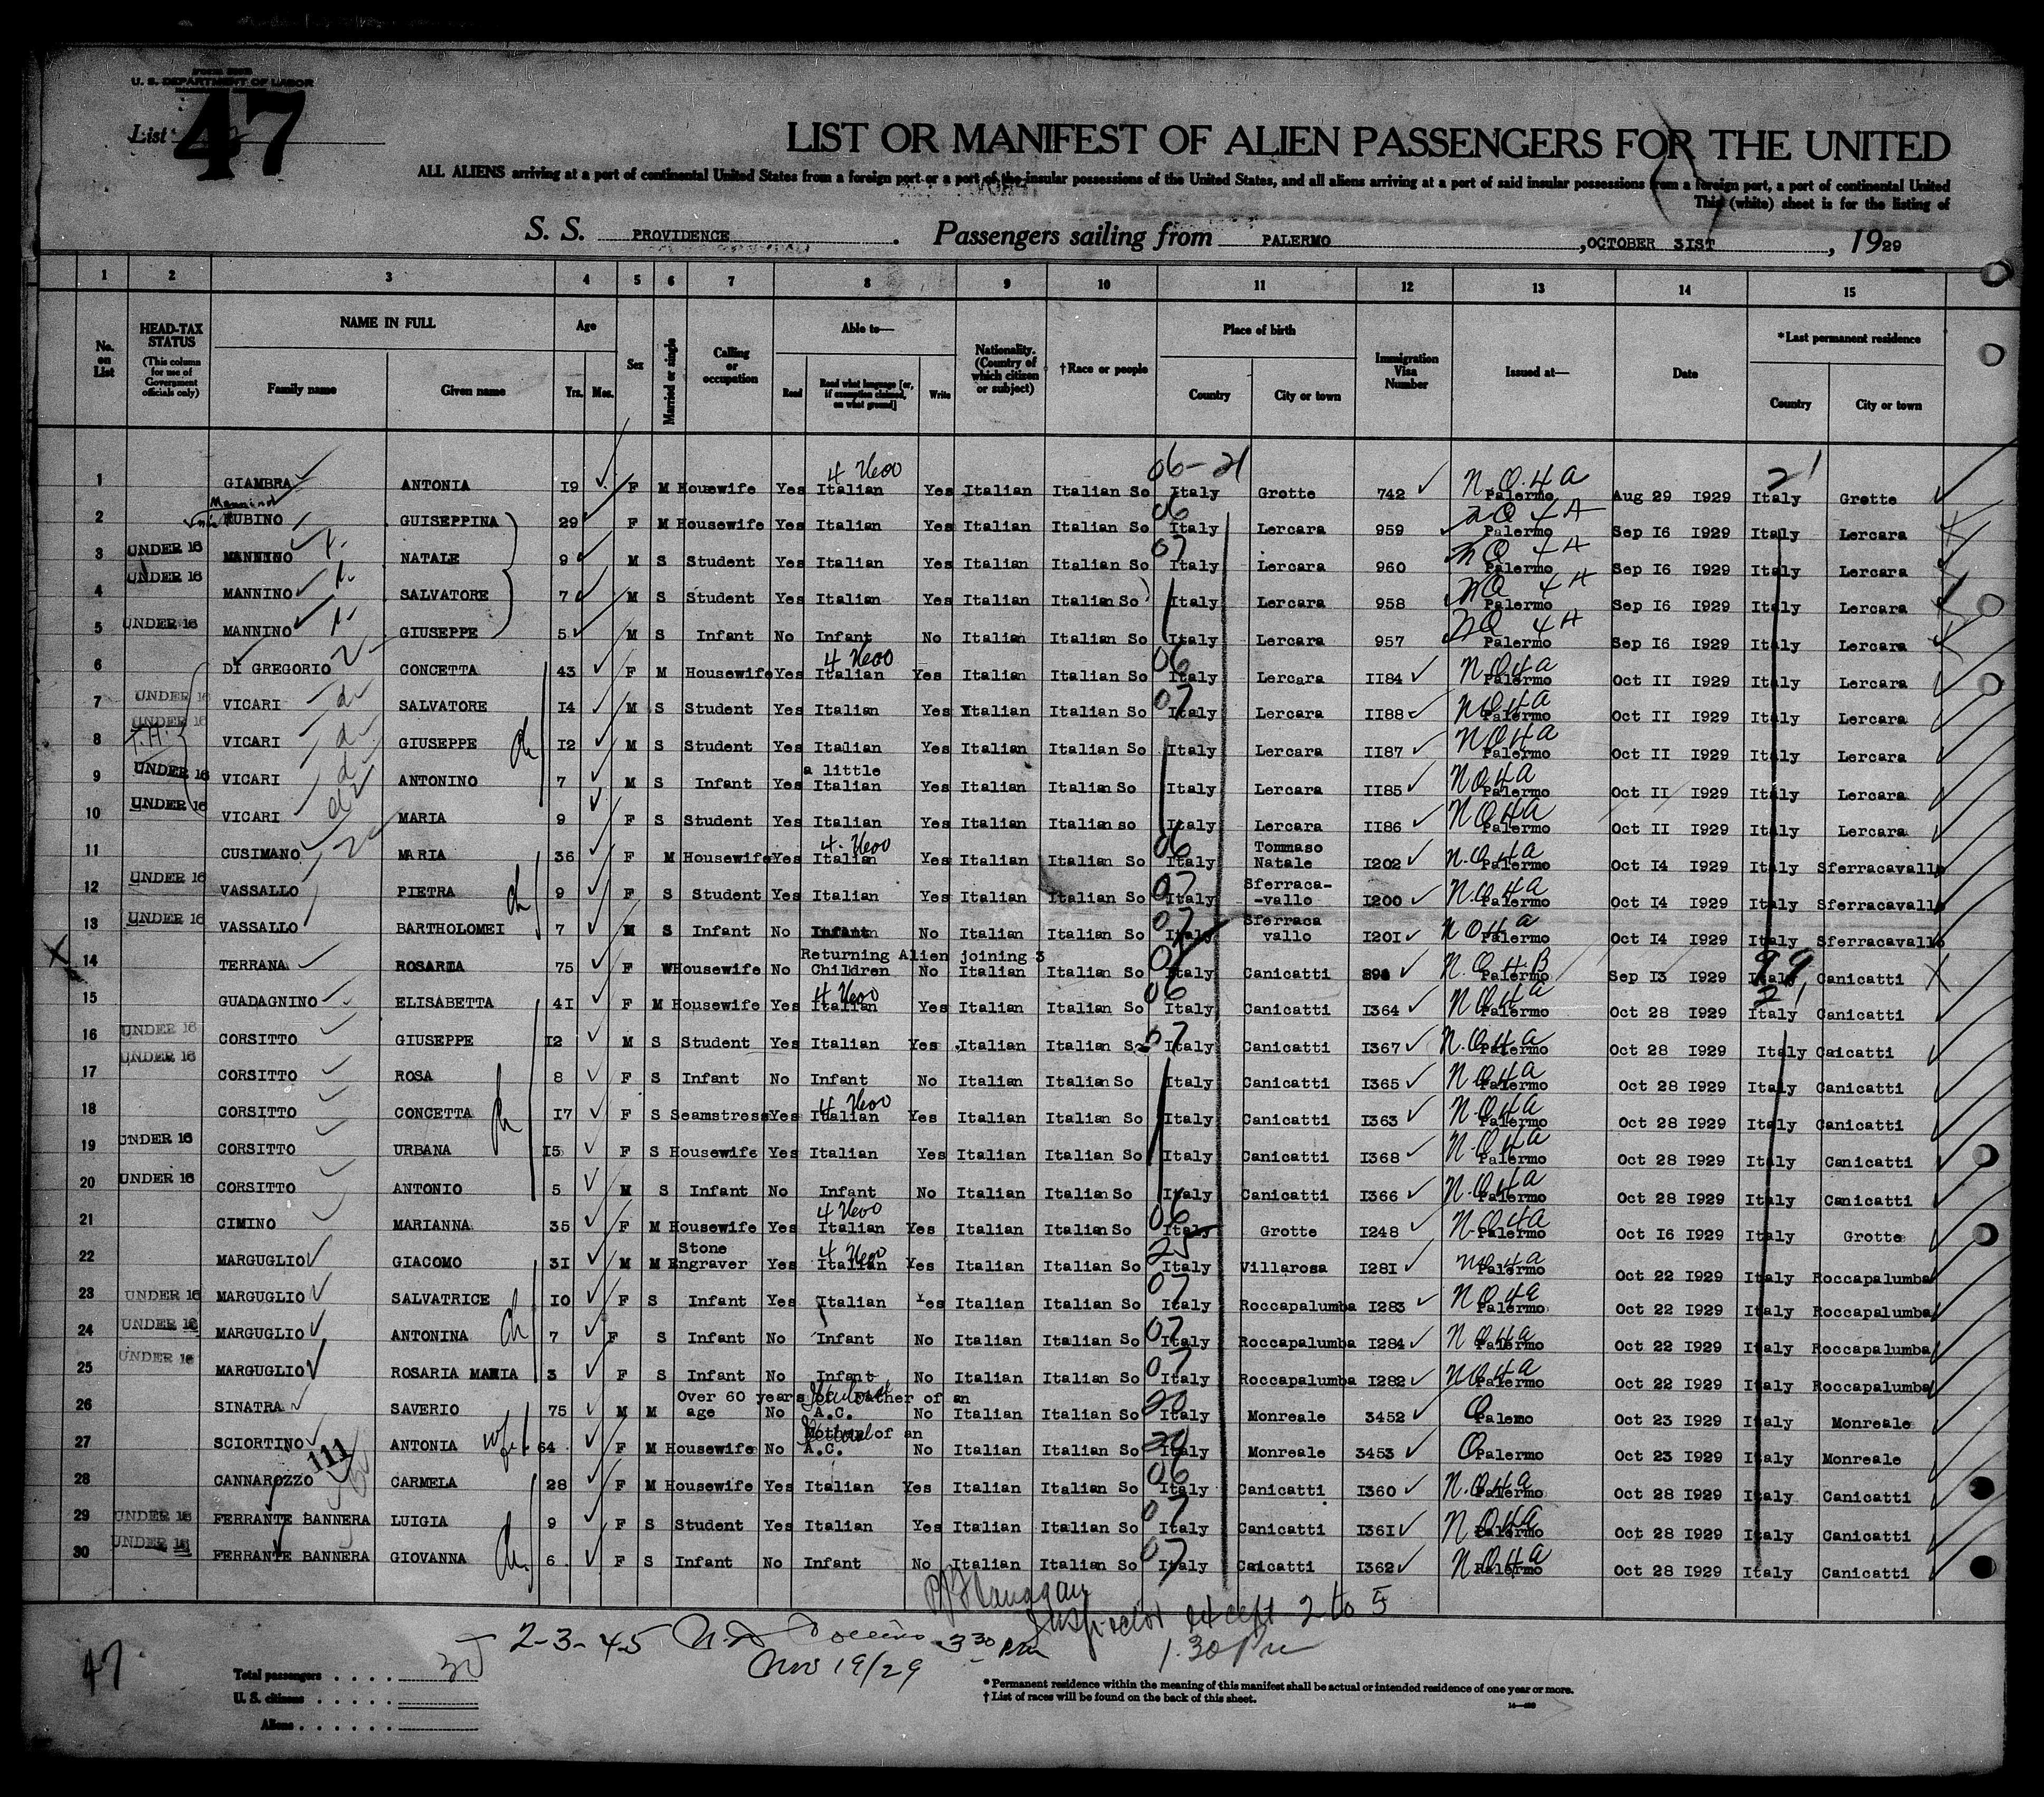 U. S. DEPARTMENT OF LABOR
List 47
LIST OR MANIFEST OF ALIEN PASSENGERS FOR THE UNITED
ALL ALIENS arriving at a port of continental United States from a foreign port or a port of the insular possessions of the United States, and all aliens arriving at a port of said insular possessions from a foreign port, a port of continental United
This (white) sheet is for the listing of
S. S. PROVIDENCE. Passengers sailing from PALERMO, OCTOBER 3IST, 1929
1 2 3 4 5 6 7 8 9 10 11 12 13 14 15
No. on List HEAD-TAX STATUS (This column for use of Government officials only) NAME IN FULL Family name Given name Age Yrs. Mos. Sex Married or single Calling or occupation Able to— Read Read what language [or, if exemption claimed, on what ground] Write Nationality. (Country of which citizen or subject) †Race or people Place of birth Country City or town Immigration Visa Number Issued at— Date *Last permanent residence Country City or town
1 GIAMBRA ANTONIA I9 F M Housewife Yes Italian Yes Italian Italian So Italy Grotte 742 Palermo Aug 29 I929 Italy Grotte
Mannino
2 RUBINO GUISEPPINA 29 F M Housewife Yes Italian Yes Italian Italian So Italy Lercara 959 Palermo Sep I6 I929 Italy Lercara
3 UNDER 16 MANNINO NATALE 9 M S Student Yes Italian Yes Italian Italian So Italy Lercara 960 Palermo Sep I6 I929 Italy Lercara
4 UNDER 16 MANNINO SALVATORE 7 M S Student Yes Italian Yes Italian Italian So Italy Lercara 958 Palermo Sep I6 I929 Italy Lercara
5 UNDER 16 MANNINO GIUSEPPE 5 M S Infant No Infant No Italian Italian So Italy Lercara 957 Palermo Sep I6 I929 Italy Lercara
6 DI GREGORIO CONCETTA 43 F M Housewife Yes Italian Yes Italian Italian So Italy Lercara II84 Palermo Oct II I929 Italy Lercara
7 UNDER 16 VICARI SALVATORE I4 M S Student Yes Italian Yes Italian Italian So Italy Lercara II88 Palermo Oct II I929 Italy Lercara
8 UNDER 16 VICARI GIUSEPPE I2 M S Student Yes Italian Yes Italian Italian So Italy Lercara II87 Palermo Oct II I929 Italy Lercara
9 UNDER 16 VICARI ANTONINO 7 M S Infant Yes a little Italian Yes Italian Italian So Italy Lercara II85 Palermo Oct II I929 Italy Lercara
10 UNDER 16 VICARI MARIA 9 F S Student Yes Italian Yes Italian Italian so Italy Lercara II86 Palermo Oct II I929 Italy Lercara
11 CUSIMANO MARIA 36 F M Housewife Yes Italian Yes Italian Italian So Italy Tommaso Natale I202 Palermo Oct I4 I929 Italy Sferracavallo
12 UNDER 16 VASSALLO PIETRA 9 F S Student Yes Italian Yes Italian Italian So Italy Sferraca- -vallo I200 Palermo Oct I4 I929 Italy Sferracavallo
13 UNDER 16 VASSALLO BARTHOLOMEI 7 M S Infant No Infant No Italian Italian So Italy Sferraca vallo I20I Palermo Oct I4 I929 Italy Sferracavallo
14 TERRANA ROSARIA 75 F W Housewife No Returning Alien joining 3 Children No Italian Italian So Italy Canicatti Palermo Sep I3 I929 Italy Canicatti
15 GUADAGNINO ELISABETTA 4I F M Housewife Yes Italian Yes Italian Italian So Italy Canicatti I364 Palermo Oct 28 I929 Italy Canicatti
16 UNDER 16 CORSITTO GIUSEPPE I2 M S Student Yes Italian Yes Italian Italian So Italy Canicatti I367 Palermo Oct 28 I929 Italy Caicatti
17 UNDER 16 CORSITTO ROSA 8 F S Infant No Infant No Italian Italian So Italy Canicatti I365 Palermo Oct 28 I929 Italy Canicatti
18 CORSITTO CONCETTA I7 F S Seamstress Yes Italian Yes Italian Italian So Italy Canicatti I363 Palermo Oct 28 I929 Italy Canicatti
19 UNDER 16 CORSITTO URBANA I5 F S Housewife Yes Italian Yes Italian Italian So Italy Canicatti I368 Palermo Oct 28 I929 Italy Canicatti
20 UNDER 16 CORSITTO ANTONIO 5 M S Infant No Infant No Italian Italian So Italy Canicatti I366 Palermo Oct 28 I929 Italy Canicatti
21 CIMINO MARIANNA 35 F M Housewife Yes Italian Yes Italian Italian So Italy Grotte I248 Palermo Oct I6 I929 Italy Grotte
22 MARGUGLIO GIACOMO 3I M M Stone Engraver Yes Italian Yes Italian Italian So Italy Villarosa I28I Palermo Oct 22 I929 Italy Roccapalumba
23 UNDER 16 MARGUGLIO SALVATRICE I0 F S Infant Yes Italian Yes Italian Italian So Italy Roccapalumba I283 Palermo Oct 22 I929 Italy Roccapalumba
24 UNDER 16 MARGUGLIO ANTONINA 7 F S Infant No Infant No Italian Italian So Italy Roccapalumba I284 Palermo Oct 22 I929 Italy Roccapalumba
25 UNDER 16 MARGUGLIO ROSARIA MARIA 3 F S Infant No Infant No Italian Italian So Italy Roccapalumba I282 Palermo Oct 22 I929 Italy Roccapalumba
26 SINATRA SAVERIO 75 M M Over 60 years of age No Father of an A.C. No Italian Italian So Italy Monreale 3452 Palemo Oct 23 I929 Italy Monreale
27 SCIORTINO ANTONIA wife 64 F M Housewife No Mother of an A.C. No Italian Italian So Italy Monreale 3453 Palermo Oct 23 I929 Italy Monreale
111
28 CANNAROZZO CARMELA 28 F M Housewife Yes Italian Yes Italian Italian So Italy Canicatti I360 Palermo Oct 28 I929 Italy Canicatti
29 UNDER 16 FERRANTE BANNERA LUIGIA 9 F S Student Yes Italian Yes Italian Italian So Italy Canicatti I36I Palermo Oct 28 I929 Italy Canicatti
30 UNDER 16 FERRANTE BANNERA GIOVANNA 6 F S Infant No Infant No Italian Italian So Italy Caicatti I362 Palermo Oct 28 I929 Italy Canicatti
Inspector except 2 to 5
2-3-4-5 3 30 PM 1.30 PM
Nov 19/29
47
Total passengers 30
U. S. citizens
Aliens
* Permanent residence within the meaning of this manifest shall be actual or intended residence of one year or more.
† List of races will be found on the back of this sheet.